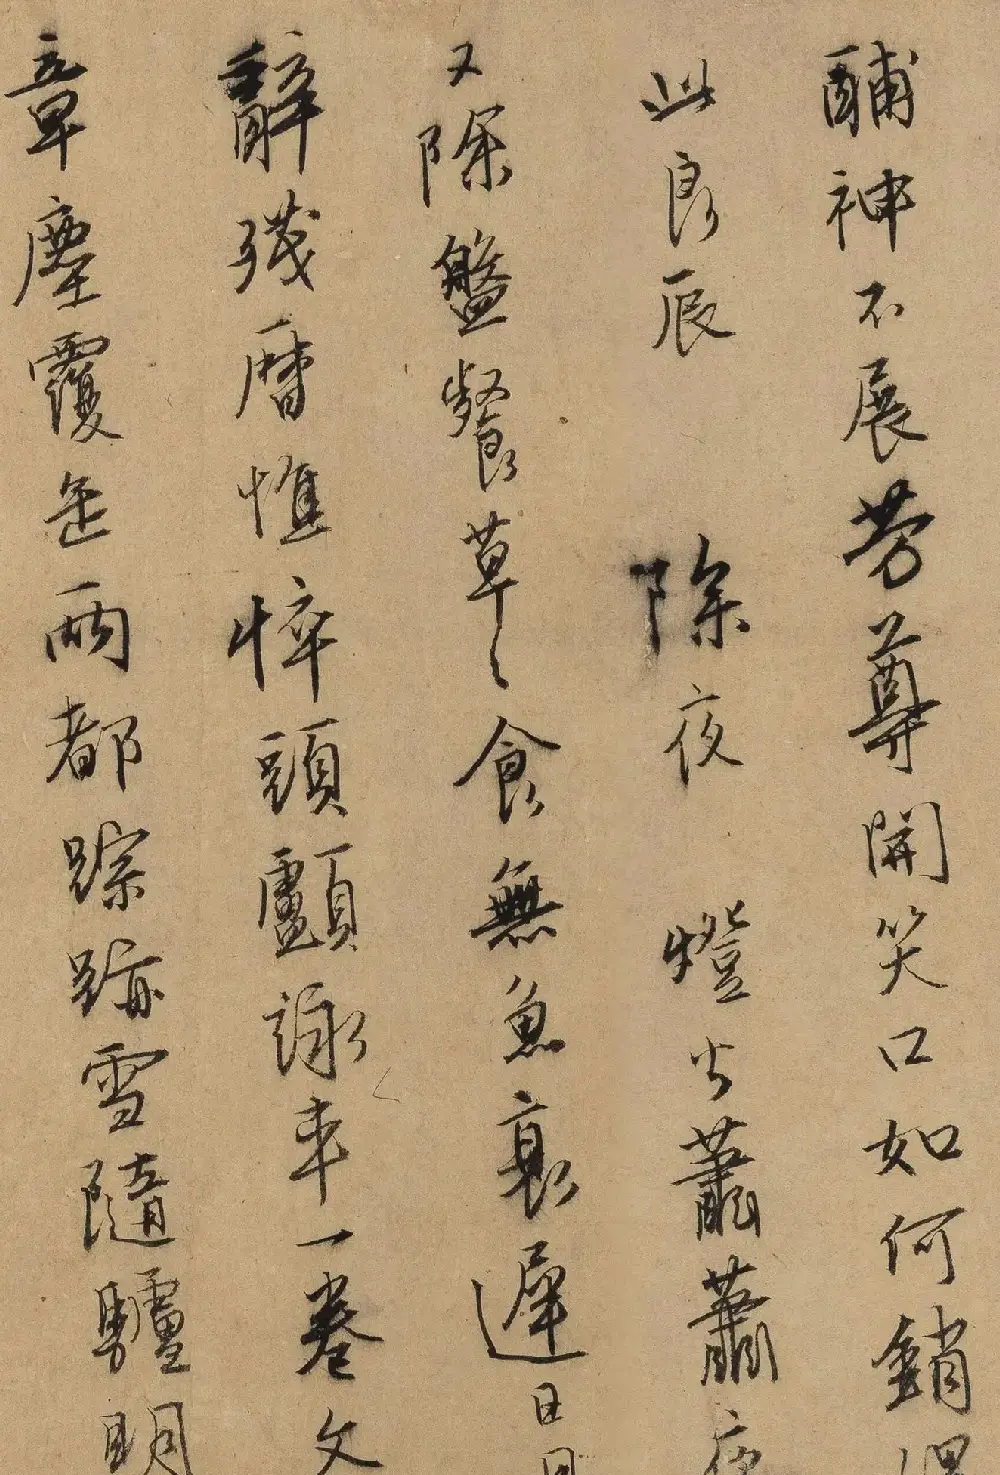 酺神不展芳尊開笑口如何銷得
此良辰 除夜 燈火蕭蕭夜
又除盤餐草〻食無魚衰遲日月
辭殘曆憔悴頭顱詠本一卷文
章塵覆缶兩都踪跡雪隨驢明